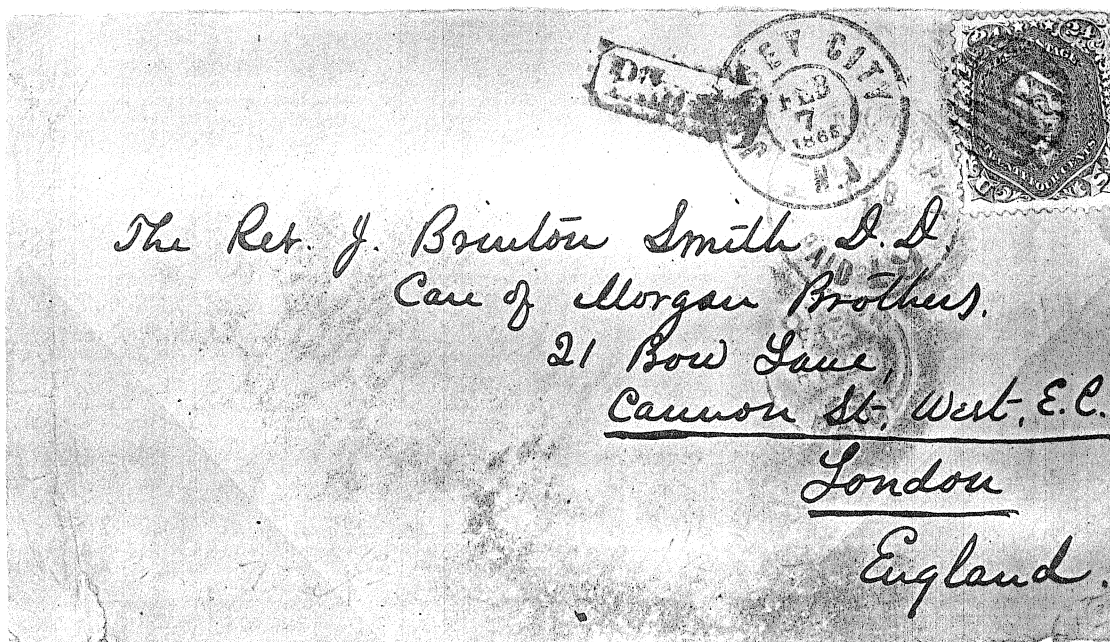 JERSEY CITY
FEB
7
1866
N.J.
24
PAID
The Rev. J. Brinton Smith D.D
Care of Morgan Brothers.
21 Bow Lane,
Cannon St, West, E.C.
London
England.